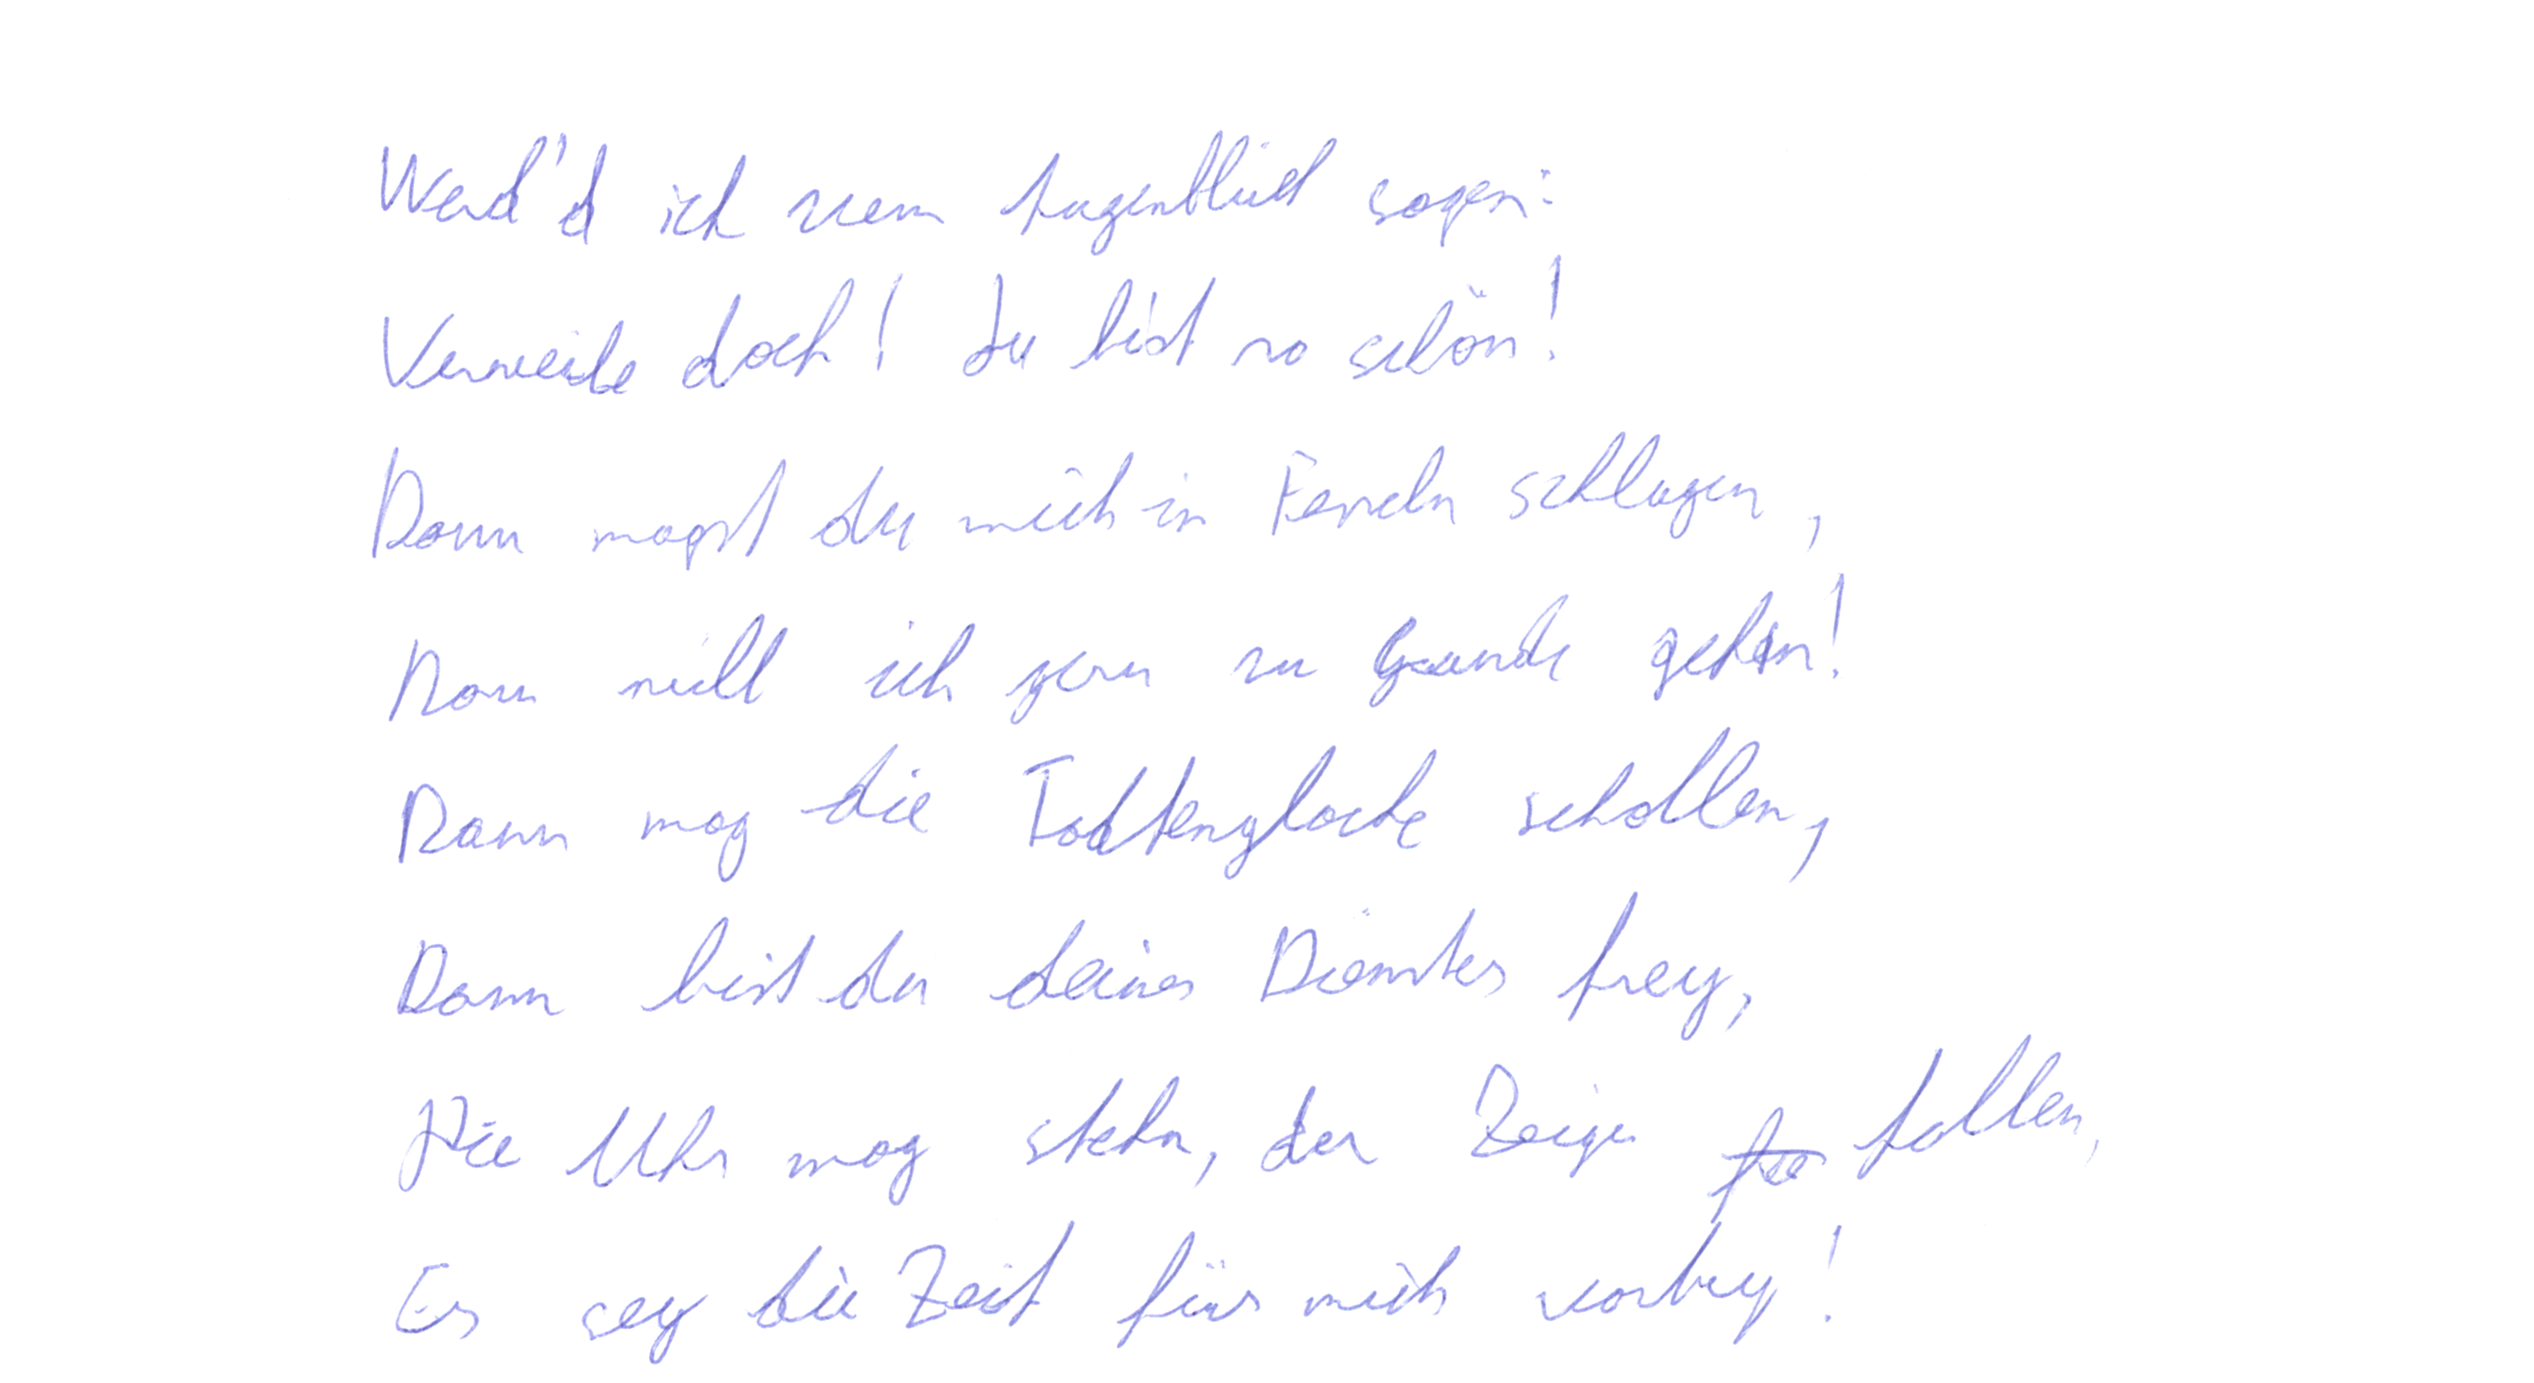 Werd'd ich zum Augenblick sagen:
Verweile doch! du bist so schön!
Dann magst du mich in Fesseln schlagen,
Dann will ich gern zu Grunde gehen!
Dann mag die Todtenglocke schallen,
Dann bist du deines Dienstes frey,
Die Uhr mag stehn, der Zeiger fallen,
Es sey die Zeit für mich vorbey!